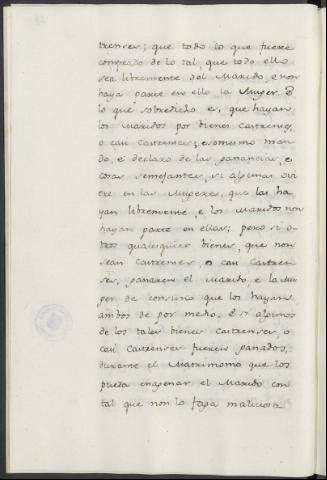 trenses; que todo lo que fuere
comprado de lo tal, que todo ello
sea libremente del Marido, e non
haya parte en ello la Muger. E
lo que sobredicho es, que hayan
los Maridos por bienes castrenses,
o casi castrenses; esomismo man-
do, e declaro de las ganancias, e
cosas semejantes, si algunas ovi
ere en las Mugeres, que las ha
yan libremente, e los Maridos non
hayan parte en ellas; pero si o-
tros qualesquier bienes, que non
sean castrenses, o casi castren
ses, ganaren el Marido, e la Mu-
ger de consuno que los hayan
ambos de por medio. E si algunos
de los tales bienes castrenses, o
casi castrenses fueren ganados,
durante el Matrimonio que los
pueda enagenar el Marido con
tal que non lo faga maliciosa